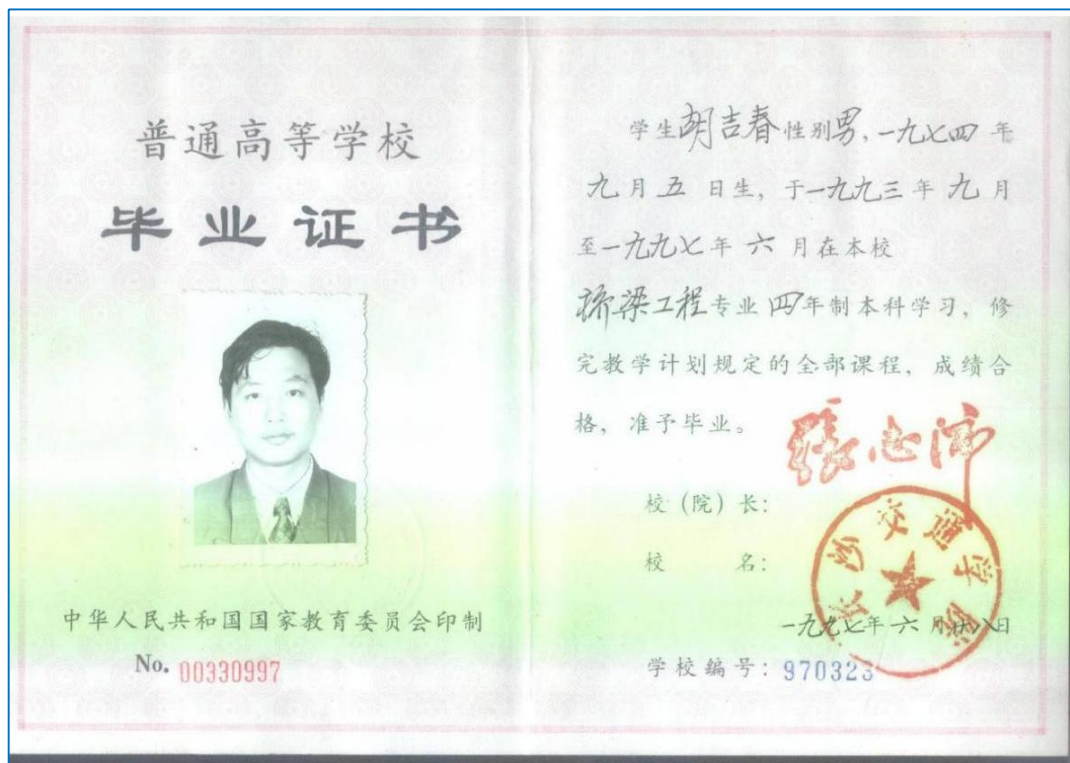 普通高等学校
毕业证书
中华人民共和国国家教育委员会印制
No. 00330997
学生胡吉春性别男,一九七四年
九月五日生,于一九九三年九月
至一九九七年六月在本校
桥梁工程专业四年制本科学习,修
完教学计划规定的全部课程,成绩合
格,准予毕业。
校(院)长:
张志沛
校名:
长沙交通学院
一九九七年六月廿八日
学校编号:970323